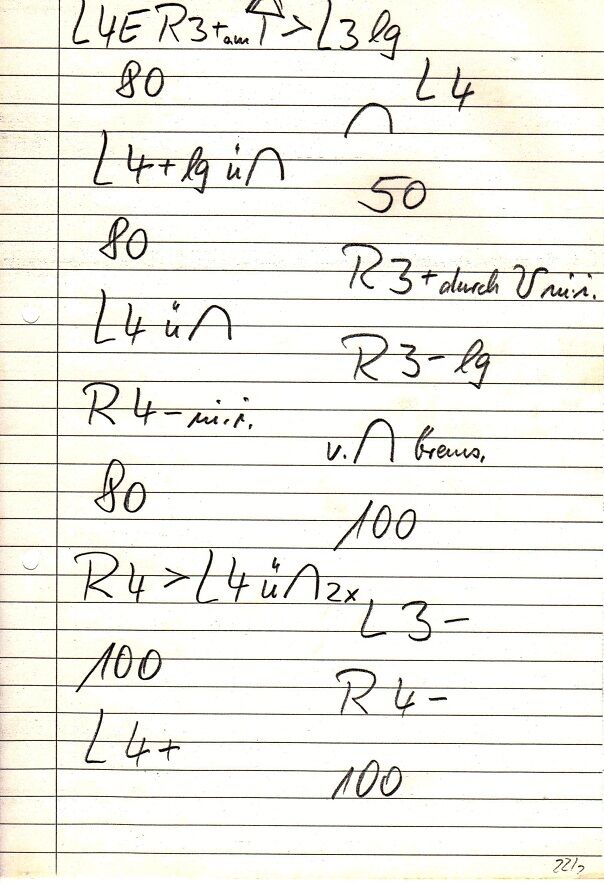 L4E R3+ am > L3 lg
80
L4+ lg ü∩
80
L4 ü∩
R4- ni.i.
80
R4 > L4 ü∩ 2x
100
L4+
L4
∩
50
R3+ durch V ni.i.
R3- lg
v. ∩ brems.
100
L3-
R4-
100